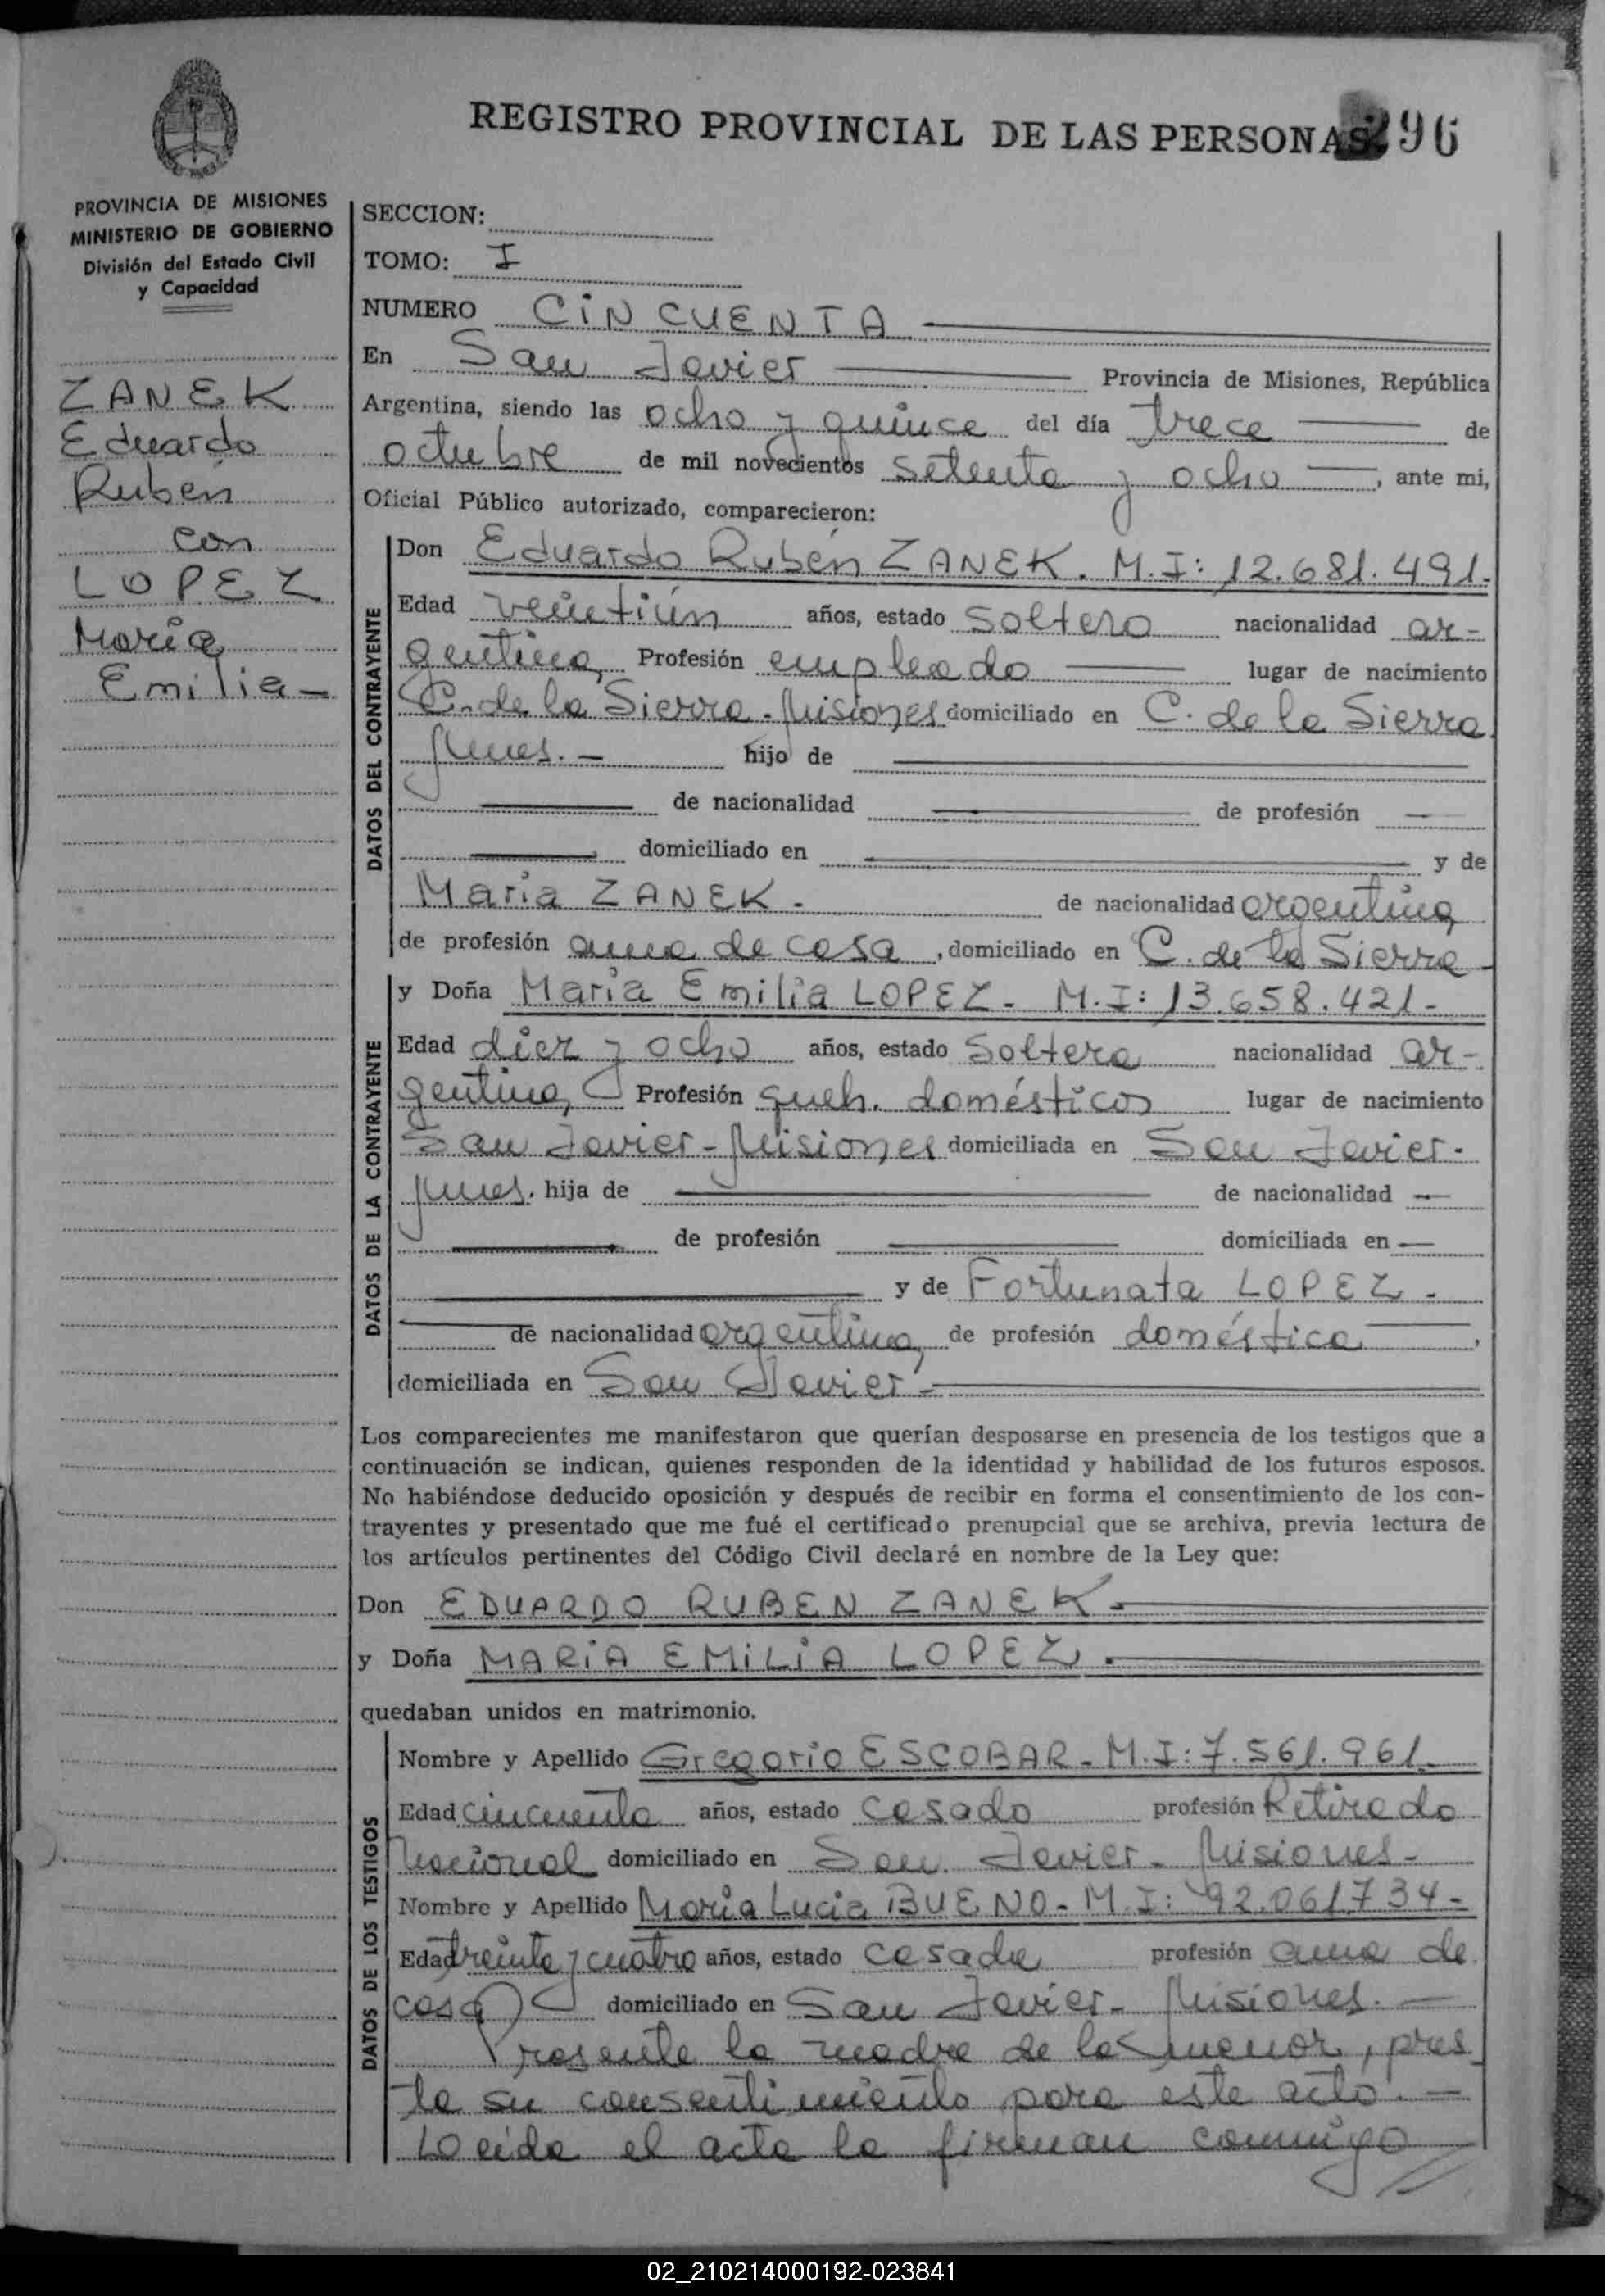 REGISTRO PROVINCIAL DE LAS PERSONAS 296
PROVINCIA DE MISIONES
MINISTERIO DE GOBIERNO
División del Estado Civil
y Capacidad
ZANEK
Eduardo
Rubén
con
LOPEZ
María
Emilia-
SECCION:
TOMO: I
NUMERO CINCUENTA
En San Javier Provincia de Misiones, República
Argentina, siendo las ocho y quince del día trece de
octubre de mil novecientos setenta y ocho, ante mi,
Oficial Público autorizado, comparecieron:
DATOS DEL CONTRAYENTE
Don Eduardo Rubén ZANEK. M.I: 12.681.491.
Edad veintiún años, estado soltero nacionalidad ar-
gentina, Profesión empleado lugar de nacimiento
C. de la Sierra. Misiones domiciliado en C. de la Sierra
Mnes. - hijo de
de nacionalidad de profesión
domiciliado en y de
María ZANEK. de nacionalidad argentina,
de profesión ama de casa, domiciliado en C. de la Sierra-
DATOS DE LA CONTRAYENTE
y Doña María Emilia LOPEZ- M.I: 13.658.421-
Edad diez y ocho años, estado soltera nacionalidad ar-
gentina, Profesión queh. domésticos lugar de nacimiento
San Javier-Misiones domiciliada en San Javier-
Mnes. hija de de nacionalidad
de profesión domiciliada en
y de Fortunata LOPEZ-
de nacionalidad argentina, de profesión doméstica,
domiciliada en San Javier-
Los comparecientes me manifestaron que querían desposarse en presencia de los testigos que a
continuación se indican, quienes responden de la identidad y habilidad de los futuros esposos.
No habiéndose deducido oposición y después de recibir en forma el consentimiento de los con-
trayentes y presentado que me fué el certificado prenupcial que se archiva, previa lectura de
los artículos pertinentes del Código Civil declaré en nombre de la Ley que:
Don EDUARDO RUBEN ZANEK-
y Doña MARIA EMILIA LOPEZ.
quedaban unidos en matrimonio.
DATOS DE LOS TESTIGOS
Nombre y Apellido Gregorio ESCOBAR- M.I: 7.561.961-
Edad cincuenta años, estado casado profesión Retirado
Nacional domiciliado en San Javier- Misiones-
Nombre y Apellido María Lucia BUENO- M.I: 92.061734-
Edad treinta y cuatro años, estado casada profesión ama de
casa domiciliado en San Javier- Misiones.-
Presente la madre de la menor, pres
ta su consentimiento para éste acto.-
Leída el acta la firman conmigo
02_210214000192-023841